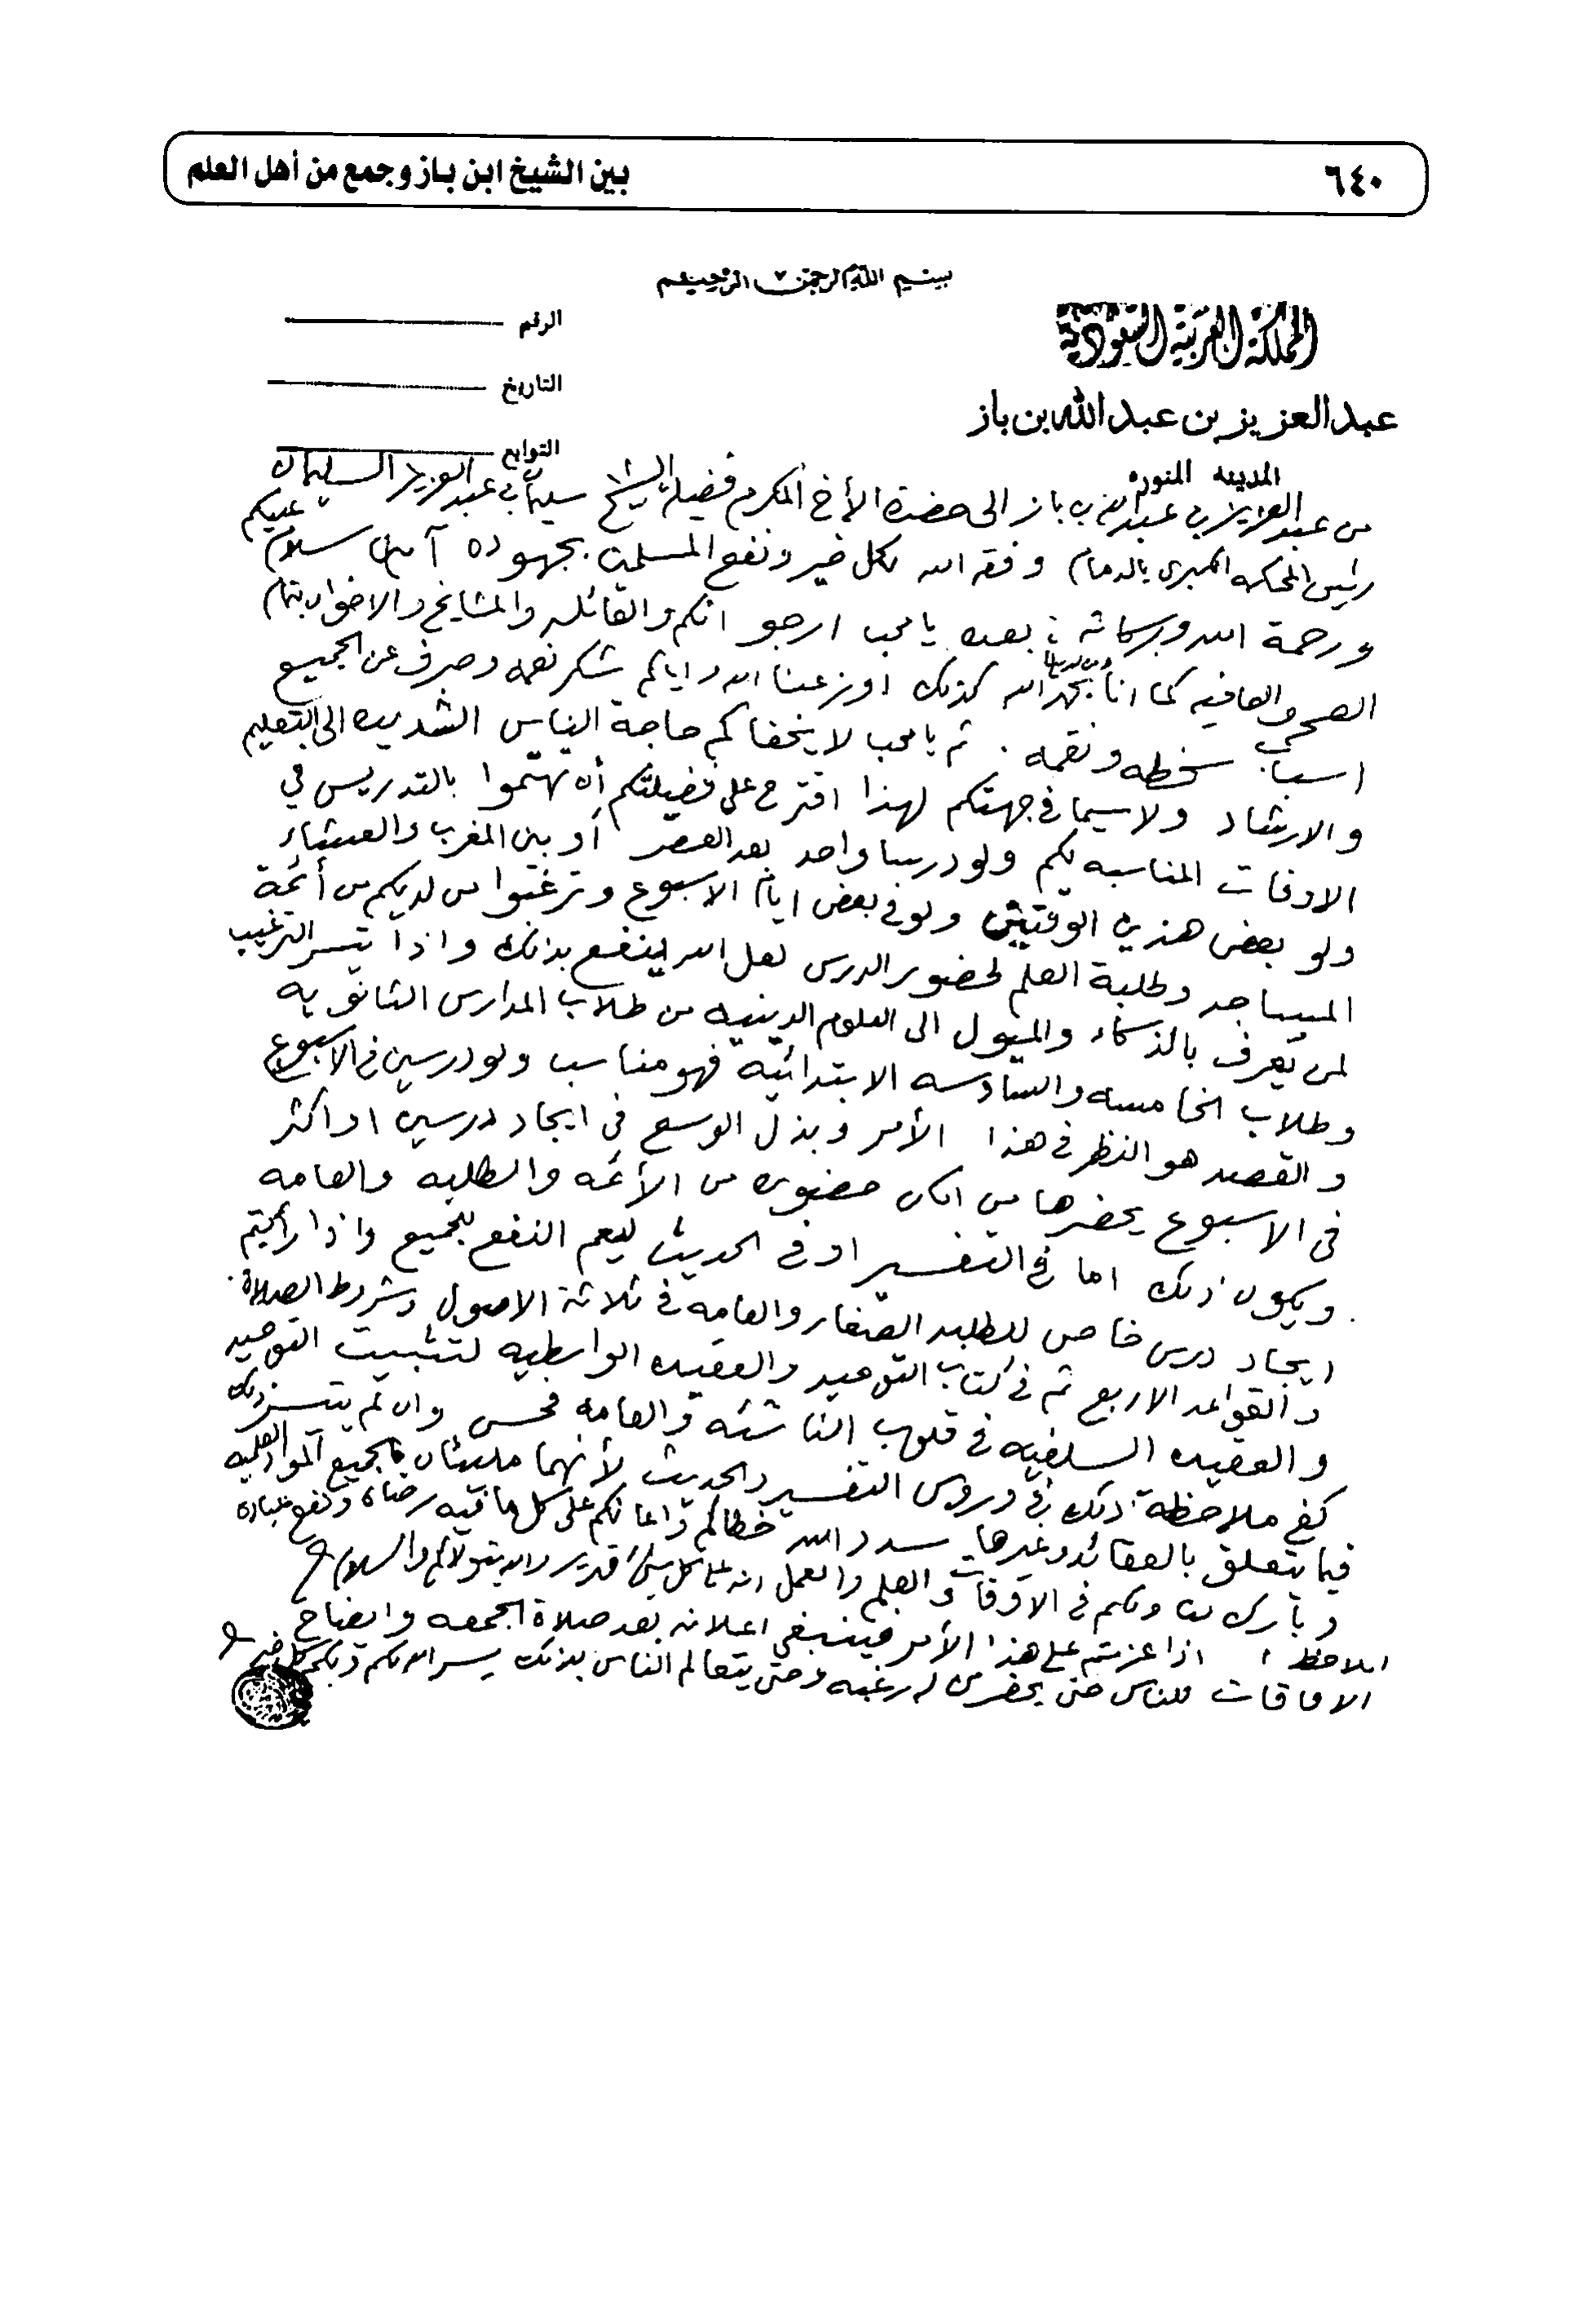 ٦٤٠
بين الشيخ ابن باز وجمع من أهل العلم
بسم الله الرحمن الرحيم
المملكة العربية السعودية
عبد العزيز بن عبد الله بن باز
المدينه المنوره
الرقم
التاريخ
التوابع
من عبد العزيز بن عبد الله بن باز الى حضرة الأخ المكرم فضيلة الشيخ سليمان بن عبد العزيز السليمان
رئيس المحكمه الكبرى بالدمام وفقه الله لكل خير ونفع المسلمين بجهوده آمين سلام عليكم
ورحمة الله وبركاته : بعده يا محب ارجو انكم والعائله والمشايخ والاخوان بتمام
الصحه والعافيه كما انا ومن لدينا بحمد الله كذلك اوزعنا الله واياكم شكر نعمه وصرف عن الجميع
اسباب سخطه ونقمه . ثم يا محب لا يخفاكم حاجة الناس الشديده الى التعليم
والارشاد ولاسيما في جهتكم لهذا اقترح على فضيلتكم أن تهتموا بالتدريس في
الاوقات المناسبه لكم ولو درسا واحد بعد العصر أو بين المغرب والعشاء
ولو بعض هذين الوقتين ولو في بعض ايام الاسبوع وترغبوا من لديكم من أئمة
المساجد وطلبة العلم لحضور الدرس لعل الله ينفع بذلك واذا تيسر الترغيب
لمن يُعرف بالذكاء والميول الى العلوم الدينيه من طلاب المدارس الثانويه
وطلاب الخامسه والسادسه الابتدائيه فهو مناسب ولو درسين في الاسبوع
والقصد هو النظر في هذا الأمر وبذل الوسع في ايجاد درسين او أكثر
في الاسبوع يحضرها من امكن حضوره من الأئمه والطلبه والعامه
ويكون ذلك اما في التفسير او في الحديث ليعم النفع للجميع واذا رأيتم
ايجاد درس خاص للطلبه الصغار والعامه في ثلاثة الاصول وشروط الصلاة
والقواعد الاربع ثم في كتاب التوحيد والعقيده الواسطيه لتثبيت التوحيد
والعقيده السلفيه في قلوب الناشئه والعامه فحسن وان لم يتيسر ذلك
كفى ملاحظة ذلك في دروس التفسير والحديث لأنهما مليئان بجميع المواد العلميه
فيما يتعلق بالعقائد وغيرها سدد الله خطاكم واعانكم على كل ما فيه رضاه ونفع عباده
وبارك لنا ولكم في الاوقات والعلم والعمل انه على كل شيء قدير والله يتولاكم والسلام
ملاحظه : اذا عزمتم على هذا الأمر فينبغي اعلانه بعد صلاة الجمعه وايضاح
الاوقات للناس حتى يحضر من له رغبه وحتى يتعالم الناس بذلك يسر الله لكم وبكم كل خير